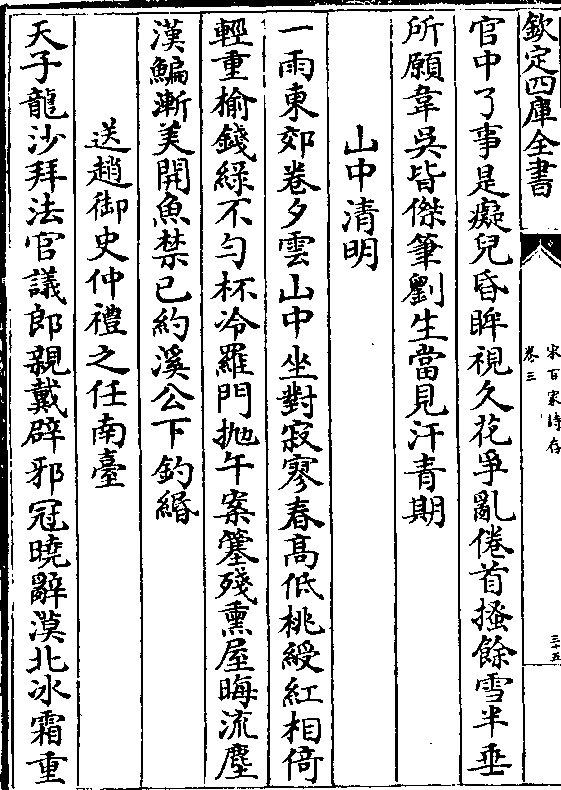 欽定四庫全書
宋百家詩存
卷三
三十五
官中了事是癡兒昏眸視久花爭亂倦首搔餘雪半垂
所願韋吳皆傑筆劉生當見汗青期
山中清明
一雨東郊卷夕雲山中坐對寂寥春髙低桃綬紅相倚
輕重榆錢綠不勻杯冷羅門抛午案篝殘熏屋晦流塵
漢鯿漸美開魚禁已約溪公下釣緡
送趙御史仲禮之任南臺
天子龍沙拜法官議郎親戴辟邪冠曉辭漠北冰霜重